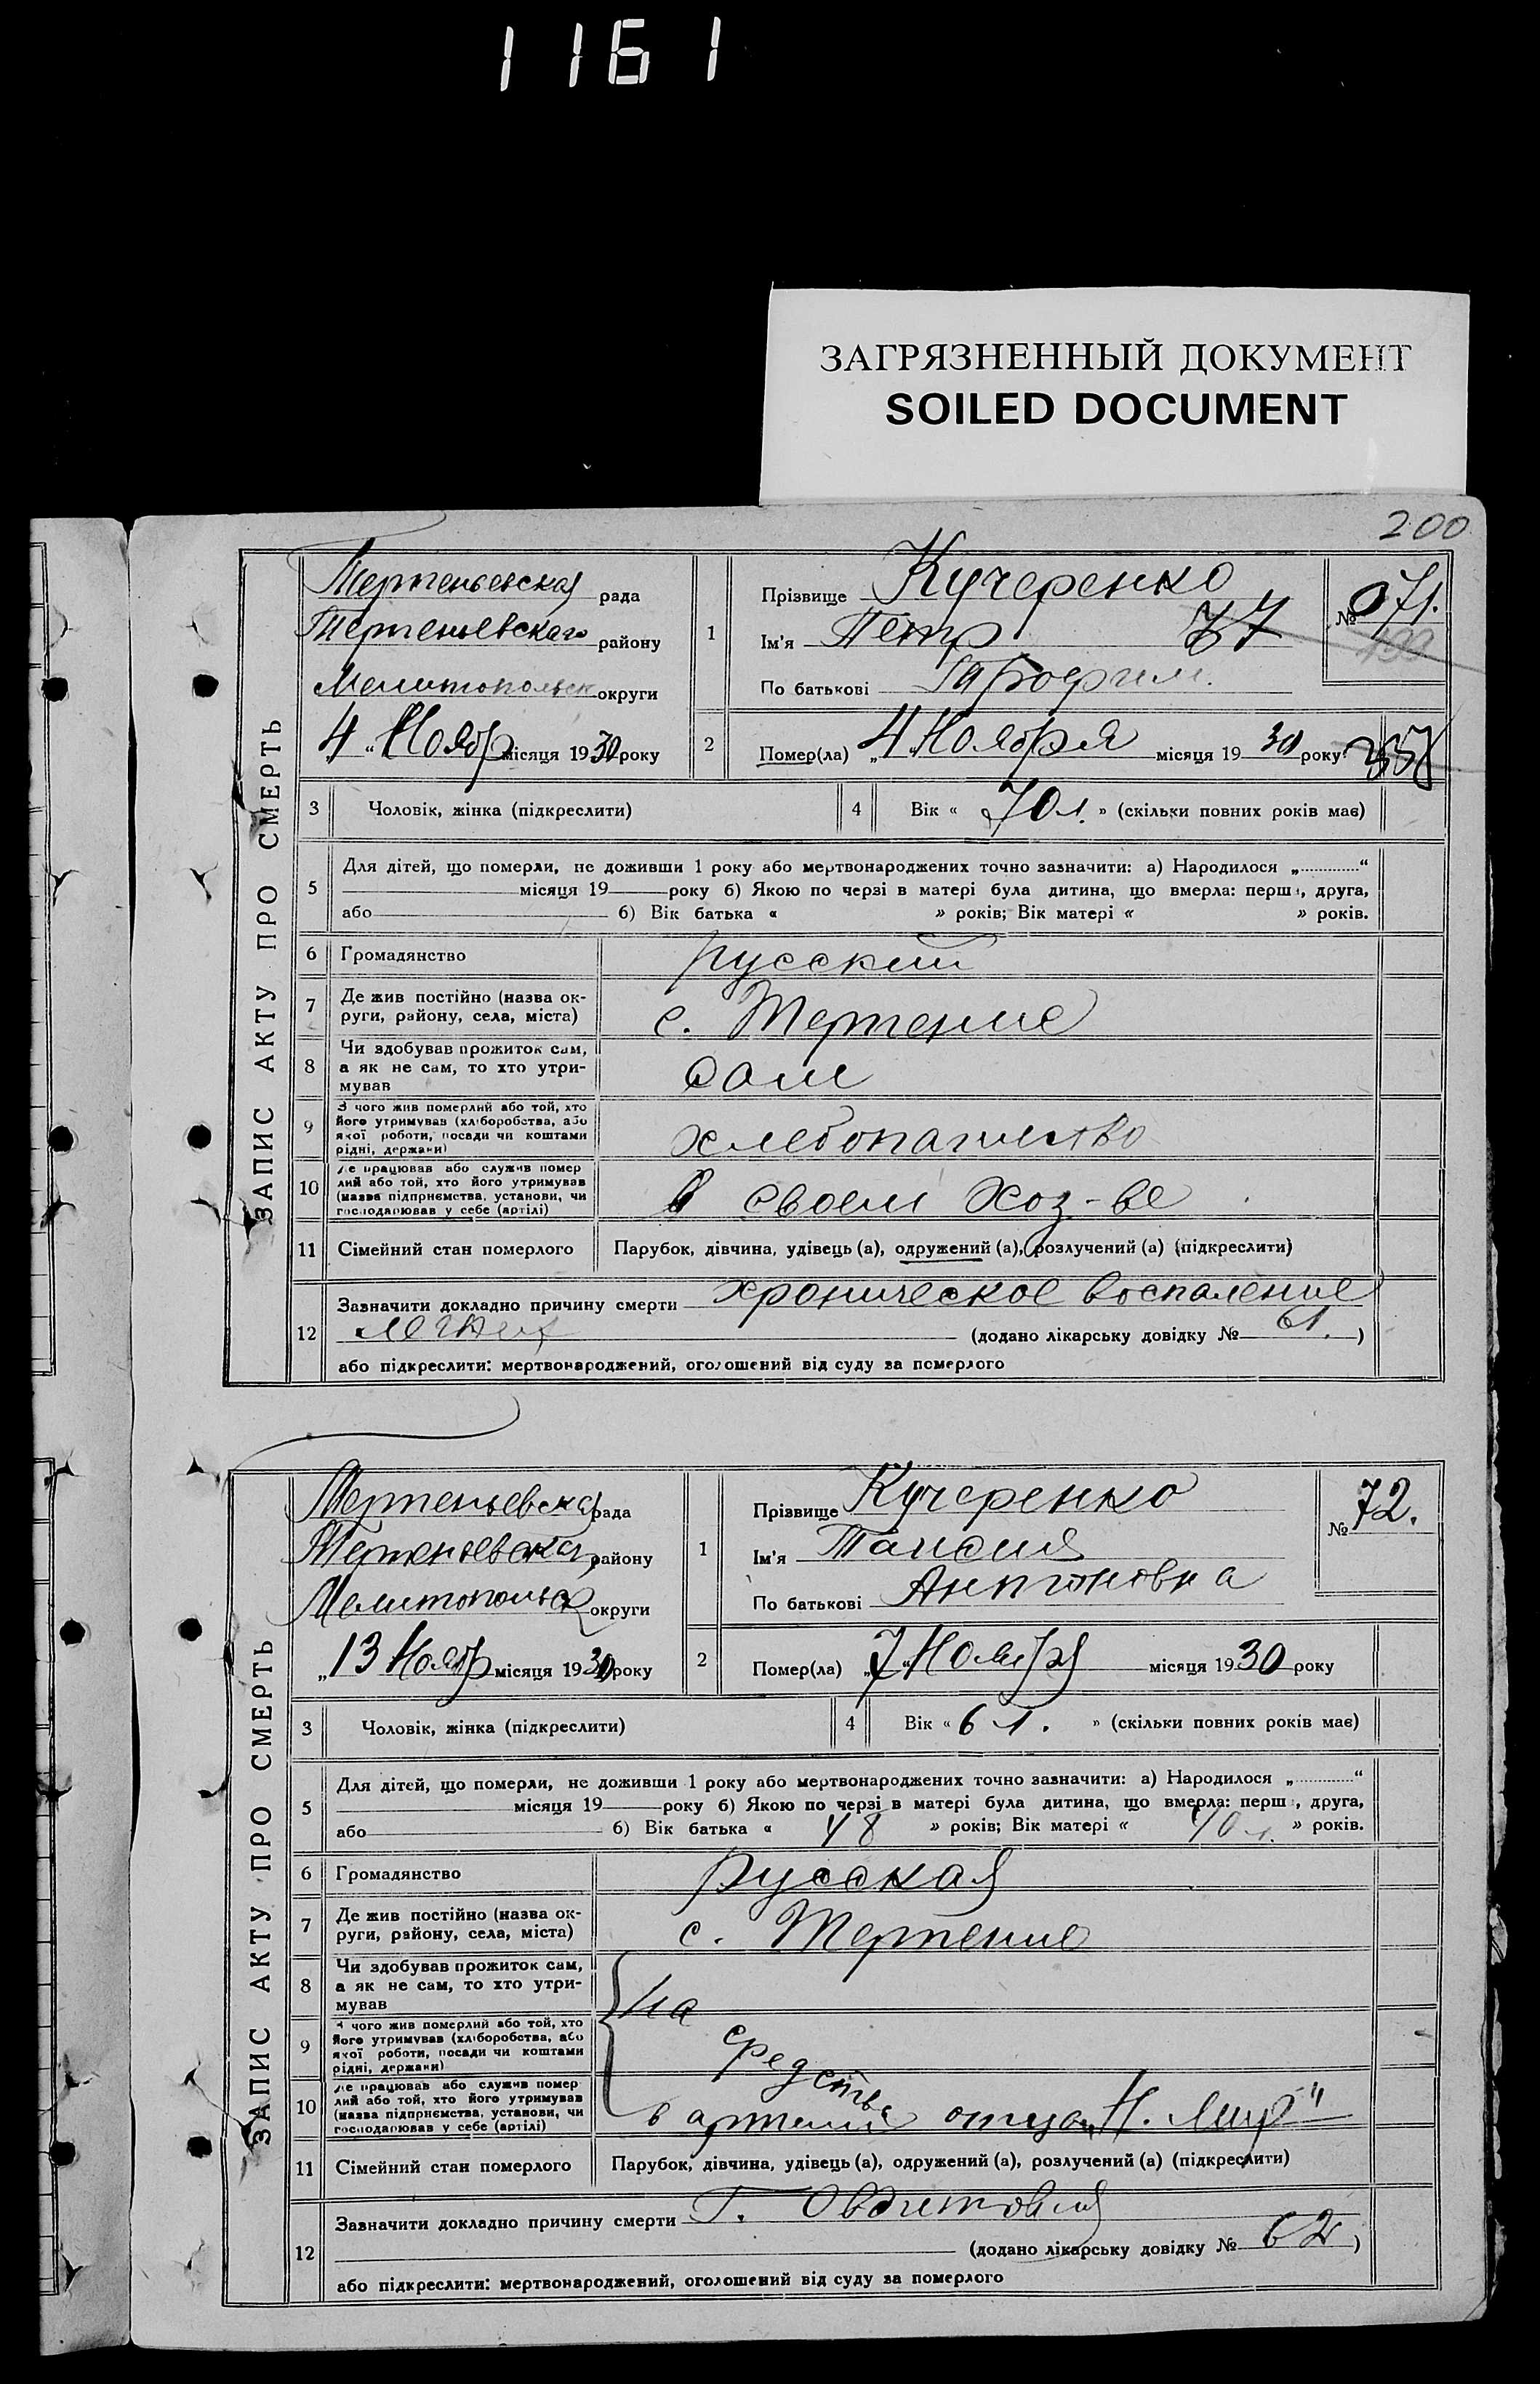 1161
ЗАГРЯЗНЕННЫЙ ДОКУМЕНТ
SOILED DOCUMENT
200
ЗАПИС АКТУ ПРО СМЕРТЬ
Терпеньевская рада
Терпеньевскаго району
Мелитопольск округи
4 " Ноябр місяця 1930 року
1
Прізвище Кучеренко
Ім'я Петр 77
По батькові
№ 071.
199
2
Помер(ла) „4" Ноября місяця 1930 року
3 Чоловік, жінка (підкреслити)
4 Вік « 70 л. » (скільки повних років має)
5 Для дітей, що померли, не доживши 1 року або мертвонароджених точно зазначити: а) Народилося „ “
місяця 19 року б) Якою по черзі в матері була дитина, що вмерла: перш , друга,
або б) Вік батька « » років; Вік матері « » років.
6 Громадянство русский
7 Де жив постійно (назва ок-
руги, району, села, міста) с. Терпение
8 Чи здобував прожиток сам,
а як не сам, то хто утри-
мував сам
9 З чого жив померлий або той, хто
його утримував (хліборобства, або
якої роботи, посади чи коштами
рідні, держави) хлебопашество
10 Де працював або служив помер
лий або той, хто його утримував
(назва підприємства, установи, чи
господарював у себе (артілі) в своем хоз-ве
11 Сімейний стан померлого Парубок, дівчина, удівець (а), одружений (а), розлучений (а) (підкреслити)
12 Зазначити докладно причину смерти хроническое воспаление
легких (додано лікарську довідку № 61. )
або підкреслити: мертвонароджений, оголошений від суду за померлого
ЗАПИС АКТУ ПРО СМЕРТЬ
Терпеньевская рада
Терпеньевская району
Мелитопольск округи
„13 Ноябр місяця 1930 року
1
Прізвище Кучеренко
Ім'я Таисия
По батькові Антоновна
№ 72.
2
Помер(ла) „7" Ноября місяця 1930 року
3 Чоловік, жінка (підкреслити)
4 Вік « 6 л. » (скільки повних років має)
5 Для дітей, що померли, не доживши 1 року або мертвонароджених точно зазначити: а) Народилося „ “
місяця 19 року б) Якою по черзі в матері була дитина, що вмерла: перш , друга,
або б) Вік батька « 48 » років; Вік матері « 40 л. » років.
6 Громадянство русская
7 Де жив постійно (назва ок-
руги, району, села, міста) с. Терпение
8 Чи здобував прожиток сам,
а як не сам, то хто утри-
мував На
9 З чого жив померлий або той, хто
його утримував (хліборобства, або
якої роботи, посади чи коштами
рідні, держави) средства
10 Де працював або служив помер
лий або той, хто його утримував
(назва підприємства, установи, чи
господарював у себе (артілі) в артели отца „Н. Мир"
11 Сімейний стан померлого Парубок, дівчина, удівець (а), одружений (а), розлучений (а) (підкреслити)
12 Зазначити докладно причину смерти
(додано лікарську довідку № 62 )
або підкреслити: мертвонароджений, оголошений від суду за померлого